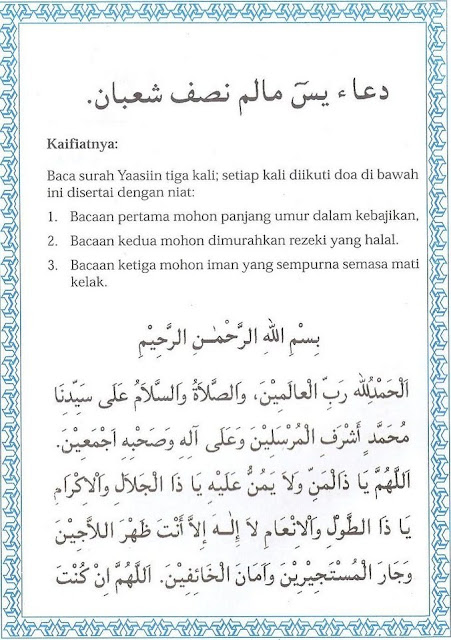 دعاء يسٓ مالم نصف شعبان.
Kaifiatnya:
Baca surah Yaasiin tiga kali; setiap kali diikuti doa di bawah
ini disertai dengan niat:
1. Bacaan pertama mohon panjang umur dalam kebajikan,
2. Bacaan kedua mohon dimurahkan rezeki yang halal.
3. Bacaan ketiga mohon iman yang sempurna semasa mati
kelak.
بِسْمِ اللهِ الرَّحْمٰنِ الرَّحِيْمِ
اَلْحَمْدُلِلّٰهِ رَبِّ الْعَالَمِيْنَ، وَالصَّلَاةُ وَالسَّلَامُ عَلَى سَيِّدِنَا
مُحَمَّدٍ أَشْرَفِ الْمُرْسَلِيْنَ وَعَلَى آلِهِ وَصَحْبِهِ اَجْمَعِيْنَ.
اَللَّهُمَّ يَا ذَالْمَنِّ وَلَا يَمُنُّ عَلَيْهِ يَا ذَا الْجَلَالِ وَالْاِكْرَامِ
يَا ذَا الطَّوْلِ وَالْاِنْعَامِ لَا إِلٰـهَ إِلَّا أَنْتَ ظَهْرَ اللَّاجِيْنَ
وَجَارَ الْمُسْتَجِيْرِيْنَ وَاَمَانَ الْخَائِفِيْنَ. اَللَّهُمَّ اِنْ كُنْتَ